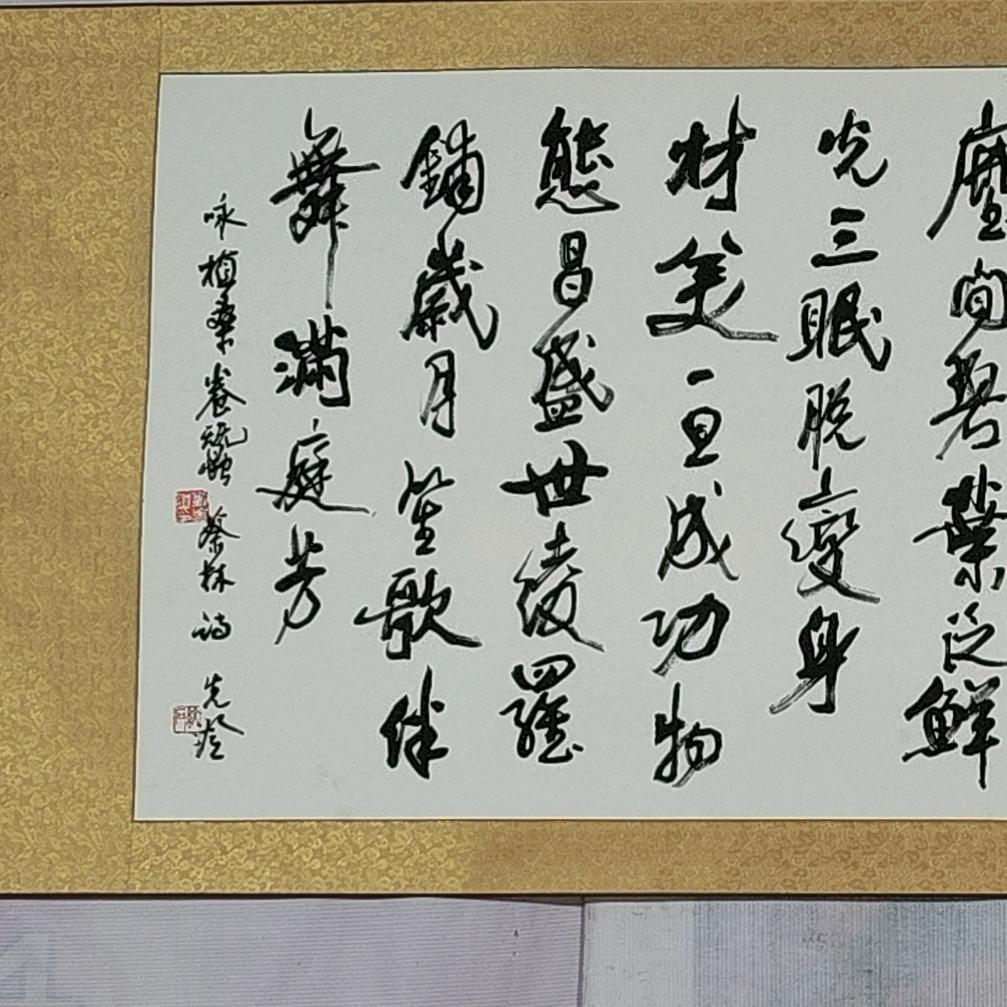 塵間碧葉泛鮮
光三眠脫變身
材美一旦成功物
態昌盛世綾羅
鋪歲月笙歌伴
舞滿庭芳
咏植桑養蠶 蔡林詩 先